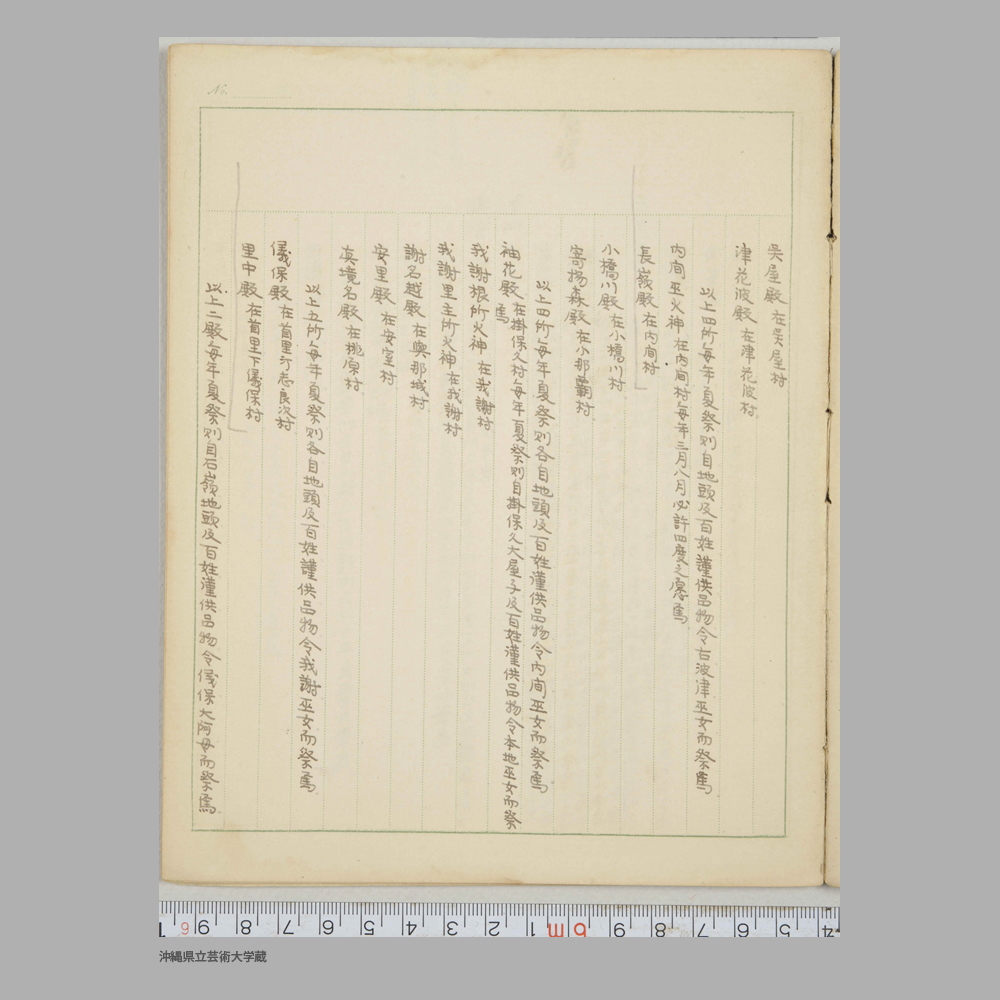 No.
呉屋殿 在呉屋村
津花波殿 在津花波村
以上四所毎年夏祭則自地頭及百姓謹供品物令右波津巫女而祭焉
内间巫火神 在内间村毎年三月八月必許四度之愿焉
長嶺殿 在内间村
小橋川殿 在小橋川村
寄揚森殿 在小那覇村
以上四所毎年夏祭則各自地頭及百姓謹供品物令内间巫女而祭焉
袖花殿 在掛保久村毎年夏祭則自掛保久大屋子及百姓謹供品物令本地巫女而祭
焉
我謝根所火神 在我謝村
我謝里主所火神 在我謝村
謝名越殿 在與那城村
安里殿 在安室村
真境名殿 在桃原村
以上五所毎年夏祭則各自地頭及百姓謹供品物令我謝巫女而祭焉
儀保殿 在首里汀志良次村
里中殿 在首里下儀保村
以上二殿毎年夏祭則自石嶺地頭及百姓謹供品物令儀保大阿母而祭焉
9 8 7 6 5 4 3 2 1 6m 9 8 7 6 5 4
沖縄県立芸術大学蔵